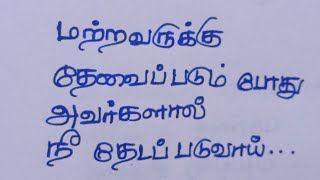 மற்றவருக்கு
தேவைப்படும் போது
அவர்களால்
நீ தேடப் படுவாய்...